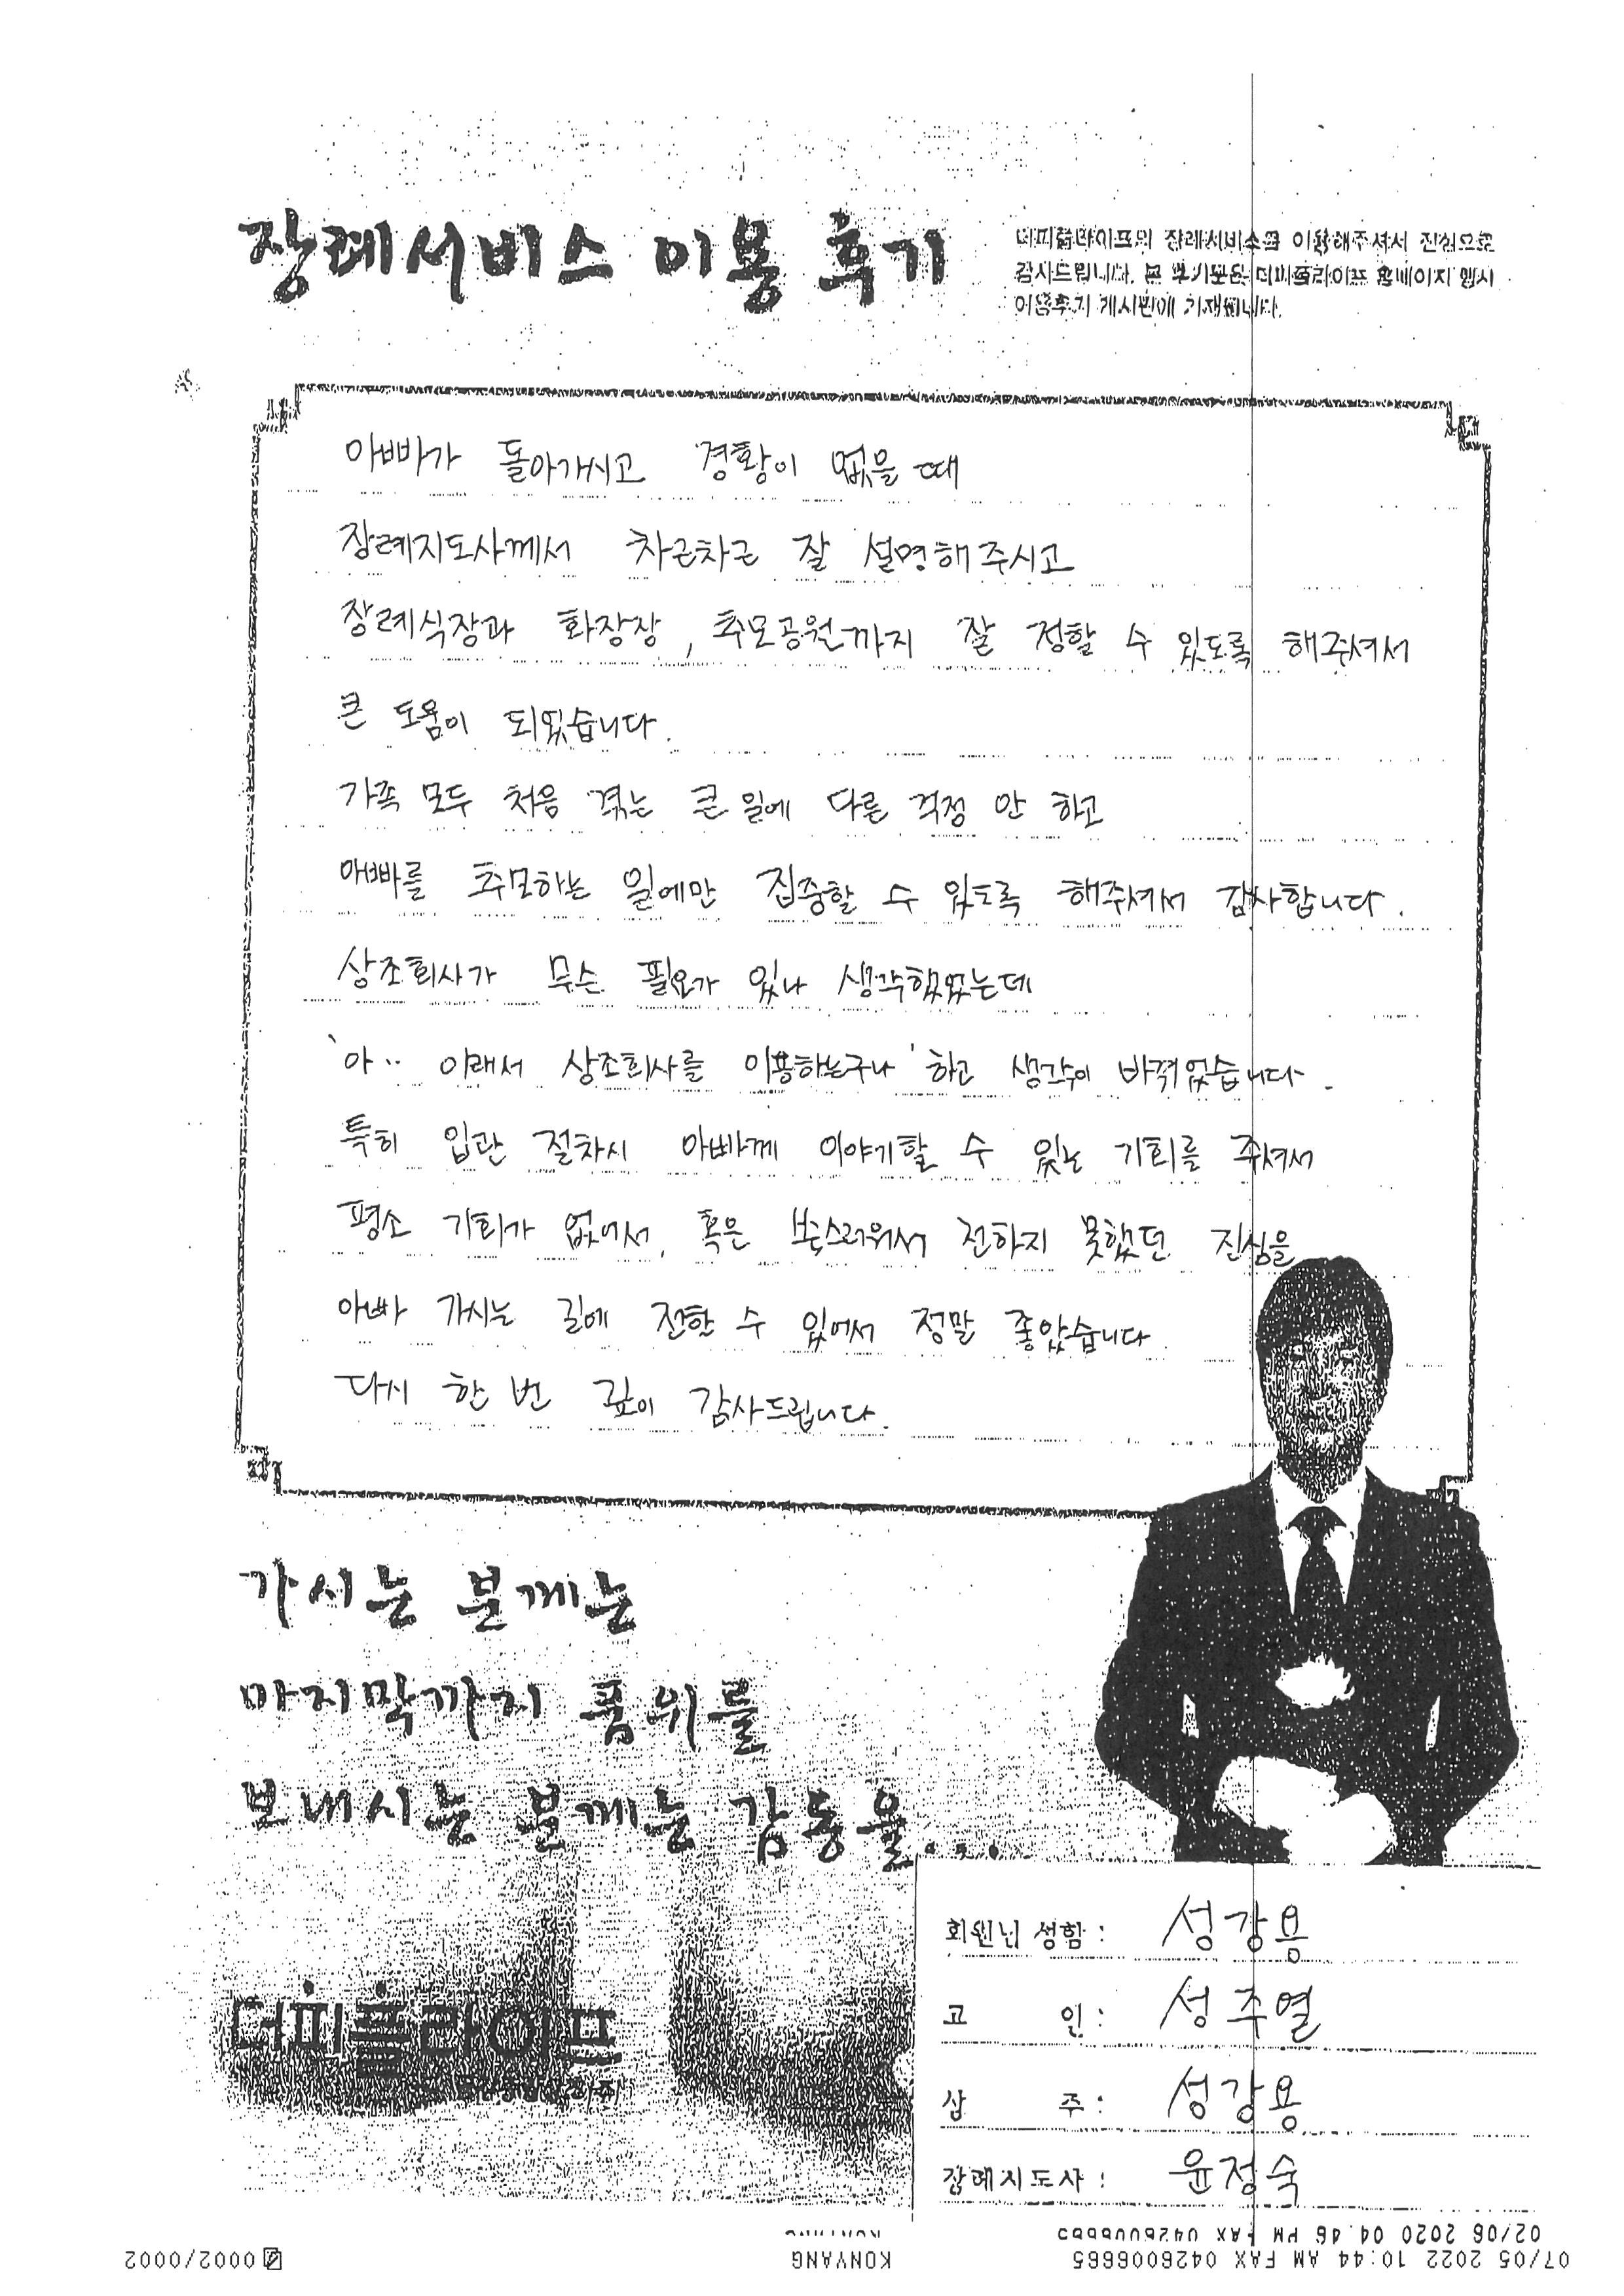 장례서비스 이용 후기
더피플라이프의 장례서비스를 이용해주셔서 진심으로
감사드립니다. 본 후기문은 더피플라이프 홈페이지 행사
이용후기 게시판에 기재됩니다.
아빠가 돌아가시고 경황이 없을 때
장례지도사께서 차근차근 잘 설명해주시고
장례식장과 화장장, 추모공원까지 잘 정할 수 있도록 해주셔서
큰 도움이 되었습니다.
가족 모두 처음 겪는 큰 일에 다른 걱정 안 하고
아빠를 추모하는 일에만 집중할 수 있도록 해주셔서 감사합니다.
상조회사가 무슨 필요가 있나 생각했었는데
'아.. 이래서 상조회사를 이용하는구나' 하고 생각이 바뀌었습니다.
특히 입관 절차시 아빠께 이야기할 수 있는 기회를 주셔서
평소 기회가 없어서, 혹은 쑥스러워서 전하지 못했던 진심을
아빠 가시는 길에 전할 수 있어서 정말 좋았습니다.
다시 한 번 깊이 감사드립니다.
가시는 분께는
마지막까지 품위를
보내시는 분께는 감동을...
더피플라이프
회원님 성함 : 성강용
고 인 : 성주열
상 주 : 성강용
장례지도사 : 윤정숙
02/06 2020 04:46 PM FAX 0426006665
07/05 2022 10:44 AM FAX 0426006665
KONYANG
0002/0002